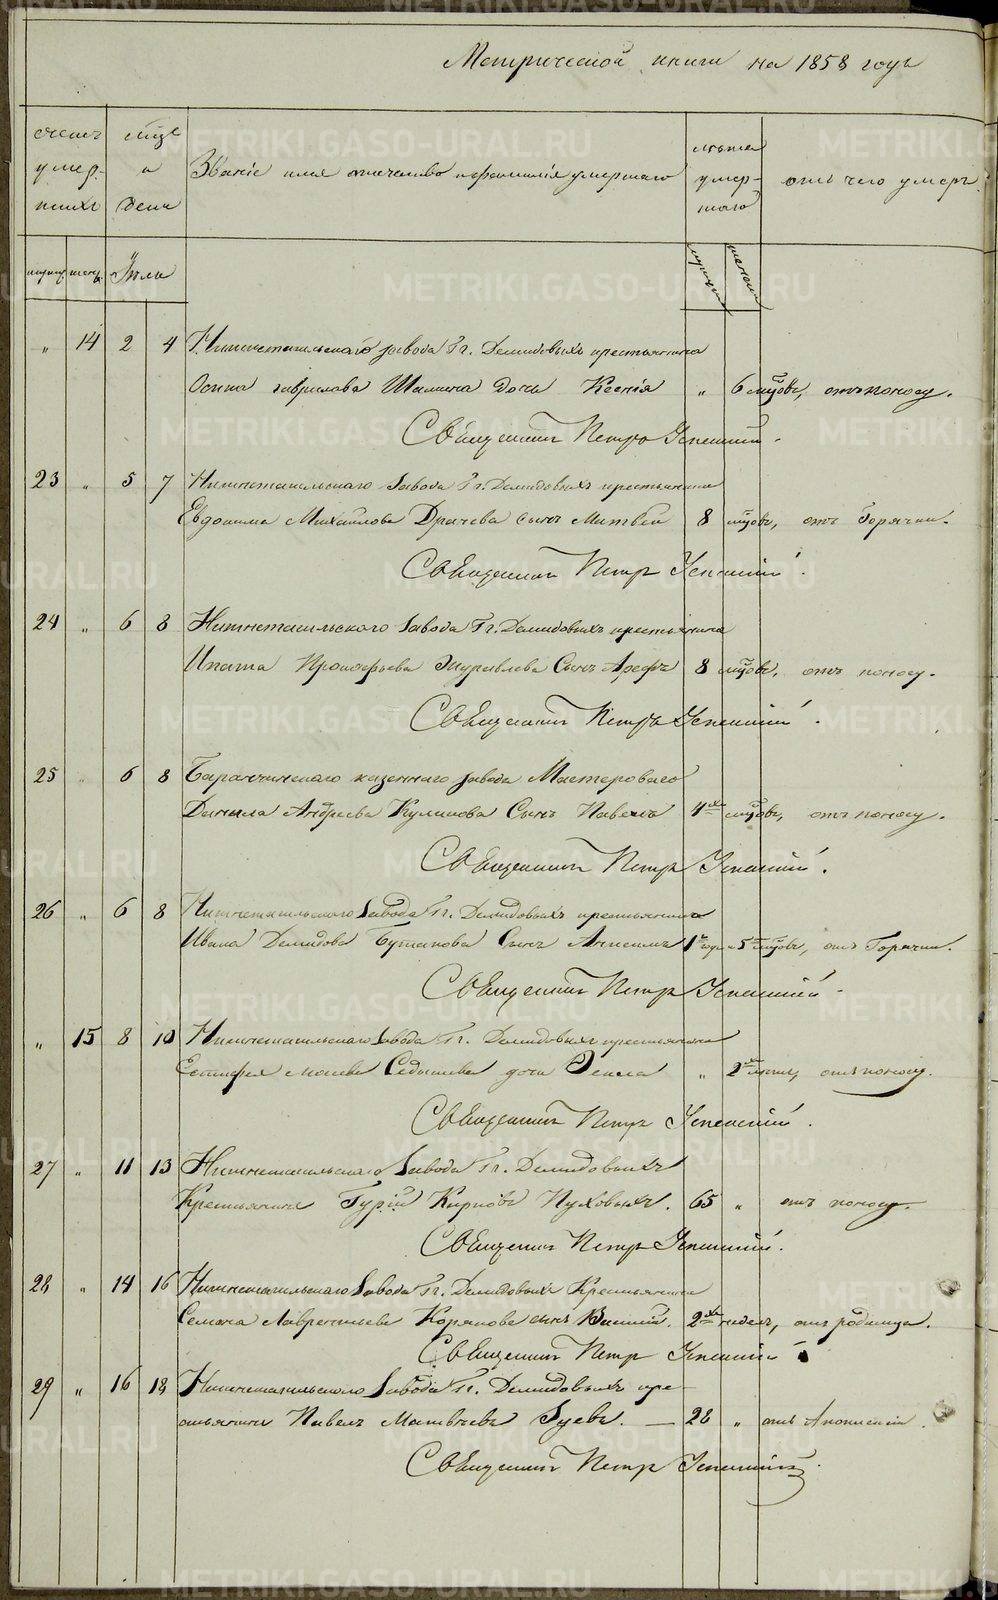 Метрической книги на 1858 годъ
счетъ умер-шихъ
мѣсяцъ и день
Званіе имя отечество и фамилія умершаго
лѣта умер-шаго
отъ чего умеръ
Іюля
" 14 2 4 Нижнетагильскаго завода Гг. Демидовыхъ крестьянина
Осипа Гаврилова дочь Ксенія " 6 мѣсяцовъ, отъ поносу.
Священникъ Петръ Успенскій.
23 " 5 7 Нижнетагильскаго завода Гг. Демидовыхъ крестьянина
Евдокима Михайлова Драчева сынъ Матвѣй 8 мѣсяцовъ, отъ Горячки.
Священникъ Петръ Успенскій.
24 " 6 8 Нижнетагильскаго завода Гг. Демидовыхъ крестьянина
Ипата Прокофьева Журавлева Сынъ 8 мѣсяцовъ, отъ поносу.
Священникъ Петръ Успенскій.
25 " 6 8 Баранчинскаго казеннаго завода Мастероваго
Данила Андреева Куликова Сынъ Павелъ 4хъ мѣсяцовъ, отъ поносу.
Священникъ Петръ Успенскій.
26 " 6 8 Нижнетагильскаго завода Гг. Демидовыхъ крестьянина
Ивана Демидова Бутакова Сынъ 1го года и 5 мѣсяцовъ, отъ Горячки.
Священникъ Петръ Успенскій.
" 15 8 10 Нижнетагильскаго завода Гг. Демидовыхъ крестьянина
Седышева дочь Текла " 2хъ лѣтъ, отъ поносу.
Священникъ Петръ Успенскій.
27 " 11 13 Нижнетагильскаго завода Гг. Демидовыхъ
Крестьянинъ Гурій Карповъ Пуховыхъ. 65 " отъ поносу.
Священникъ Петръ Успенскій.
28 " 14 16 Нижнетагильскаго завода Гг. Демидовыхъ Крестьянина
Семена Лаврентьева сынъ 2хъ недель, отъ родимца.
Священникъ Петръ Успенскій
29 " 16 18 Нижнетагильскаго завода Гг. Демидовыхъ кре-
стьянинъ Павелъ Матвѣевъ Зуевъ. — 28 " отъ
Священникъ Петръ Успенскій
METRIKI.GASO-URAL.RU